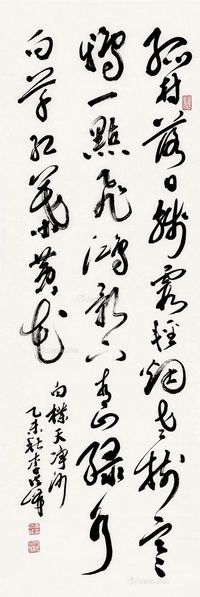 孤村落日殘霞輕烟老樹寒
鴉一點飛鴻影下青山綠水
白草紅葉黃花
白樸天淨沙
乙未秋李峰